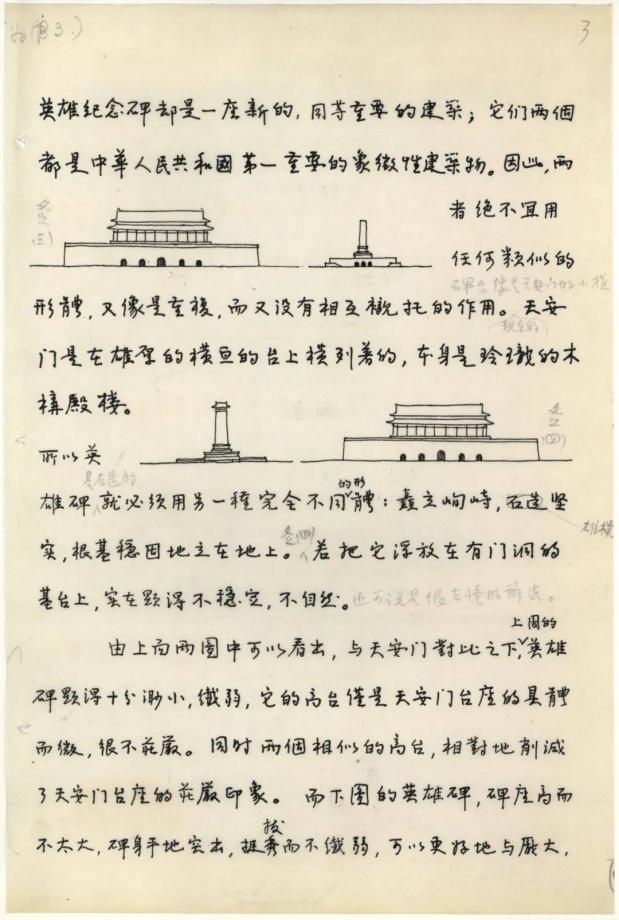 3
英雄纪念碑却是一座新的，同等重要的建築；它们两個
都是中華人民共和國第一重要的象徵性建築物。因此，两
者绝不宜用
任何類似的
形體，又像是重複，而又没有相互襯托的作用。天安
门是在雄厚的横亘的台上横列着的，本身是玲瓏的木
構殿樓。
所以英
是石造的
的形
雄碑就必须用另一種完全不同體：矗立峋峙，石造坚
实，根基稳固地立在地上。若把它浮放在有门洞的
基台上，实在顯得不稳定，不自然。也可说是很古怪的辦法。
上圖的
由上面两圖中可以看出，与天安门對比之下，英雄
碑顯得十分渺小，纖弱，它的高台僅是天安门台座的具體
而微，很不莊嚴。同时两個相似的高台，相對地削減
了天安门台座的莊嚴印象。而下圖的英雄碑，碑座高而
拔
不太大，碑身平地突出，挺秀而不纖弱，可以更好地与厖大，